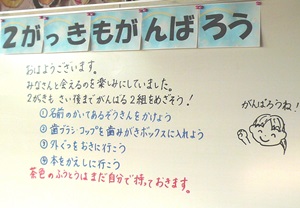 2がっきもがんばろう
おはようございます。
みなさんと会えるのを楽しみにしていました。
2がっきも さい後までがんばる2組をめざそう!
①名前のかいてあるぞうきんをかけよう
②歯ブラシ コップを歯みがきボックスに入れよう
③外ぐつをおきに行こう
④本をかえしに行こう
茶色のふうとうはまだ自分で持っておきます。
がんばろうね!